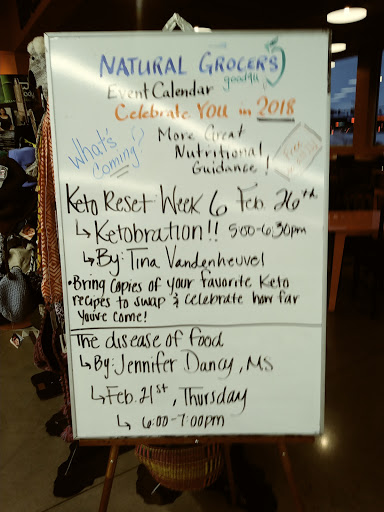 NATURAL GROCERS
good4u
Event Calendar
Celebrate YOU in 2018
What's Coming?
More Great
Nutritional
Guidance!
Keto Reset: Week 6 Feb. 26th
↳ Ketobration!! 5:00-6:30pm
↳ By: Tina Vandenheuvel
• Bring copies of your favorite Keto
recipes to swap & celebrate how far
you've come!
The disease of food
↳ By: Jennifer Dancy, MS
↳ Feb. 21st, Thursday
↳ 6:00-7:00pm